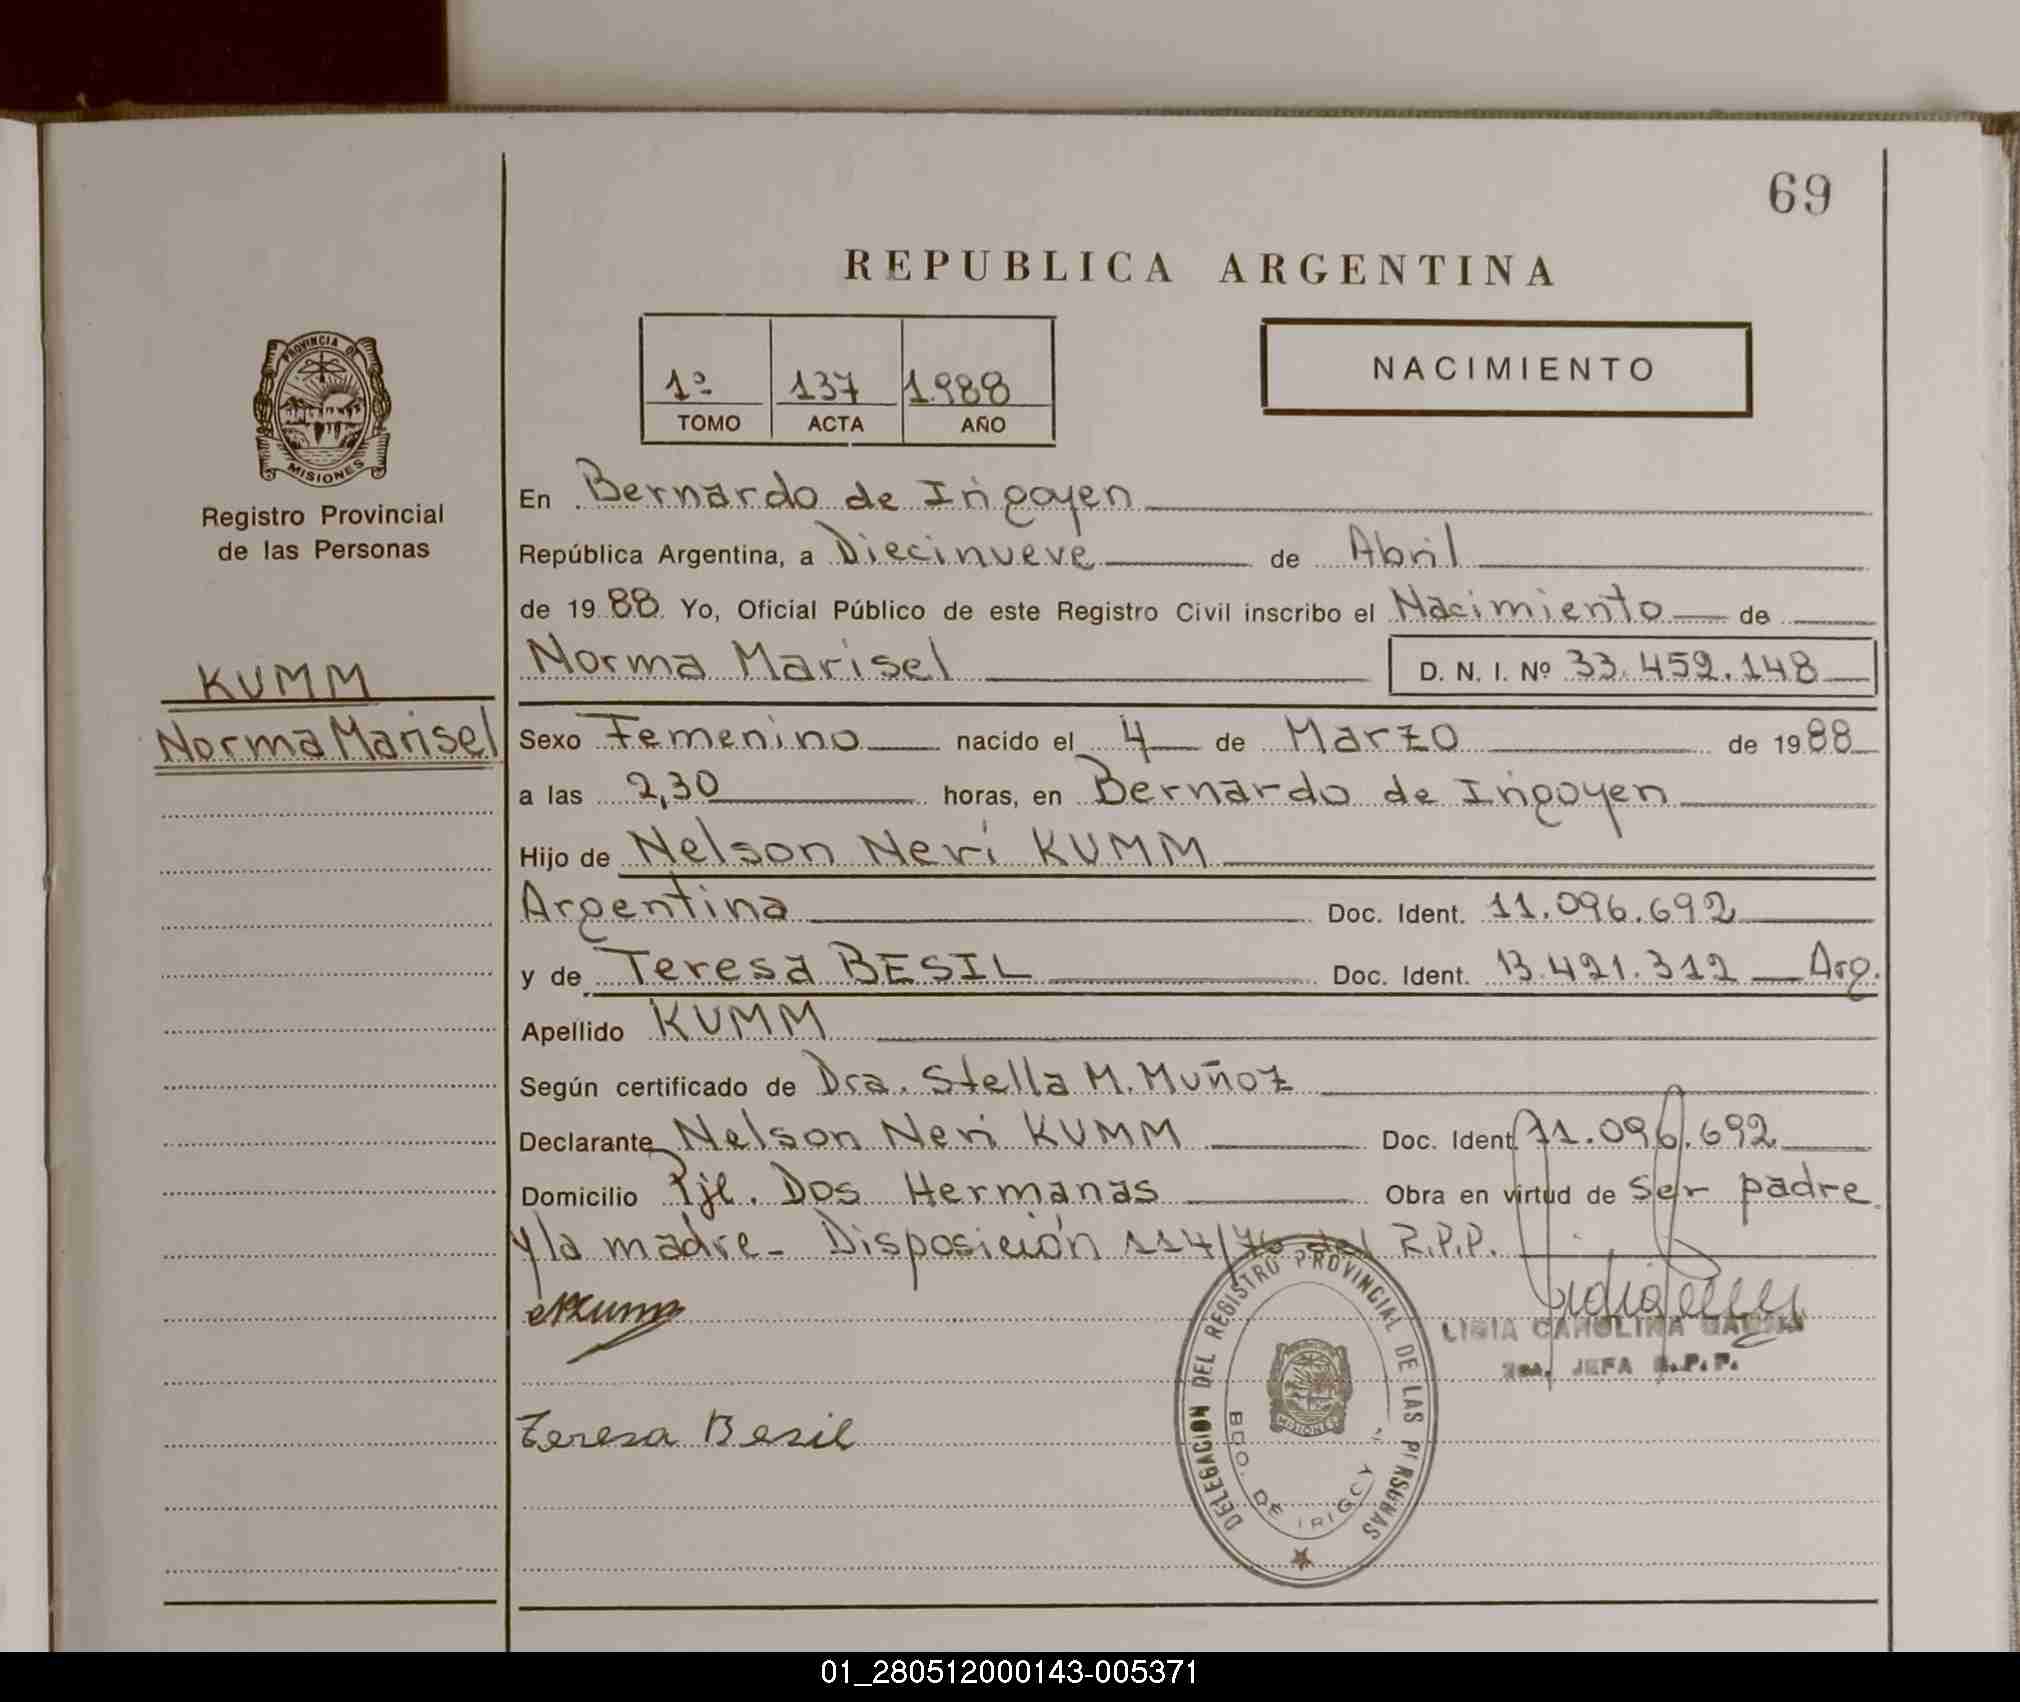 69
REPUBLICA ARGENTINA
1º 137 1.988
TOMO ACTA AÑO
NACIMIENTO
PROVINCIA DE
MISIONES
Registro Provincial
de las Personas
KUMM
Norma Marisel
En Bernardo de Irigoyen
República Argentina, a Diecinueve de Abril
de 1988 Yo, Oficial Público de este Registro Civil inscribo el Nacimiento de
Norma Marisel D. N. I. Nº 33.459.148
Sexo Femenino nacido el 4 de Marzo de 1988
a las 2,30 horas, en Bernardo de Irigoyen
Hijo de Nelson Neri KUMM
Argentina Doc. Ident. 11.096.692
y de Teresa BESIL Doc. Ident. 13.421.312 Arg.
Apellido KUMM
Según certificado de Dra. Stella M. Muñoz
Declarante Nelson Neri KUMM Doc. Ident. 11.096.692
Domicilio Pje. Dos Hermanas Obra en virtud de ser padre
y la madre - Disposición 114/76 del R.P.P.
LIGIA CAROLINA
JEFA R.P.P.
Teresa Besil
DELEGACION DEL REGISTRO PROVINCIAL DE LAS PERSONAS
MISIONES
BDO. DE IRIGOYEN
01_280512000143-005371